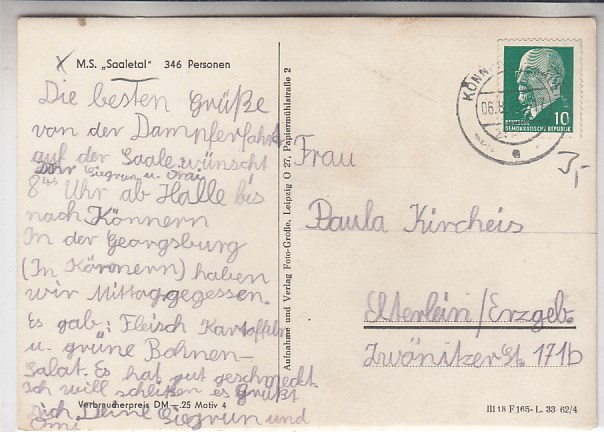 M.S. „Saaletal" 346 Personen
Die besten Grüße
von der Dampferfahrt
auf der Saale wünscht
Dir Siegrun u. Omi
8⁴⁵ Uhr ab Halle bis
nach Könnern
In der Georgsburg
(In Könnern) haben
wir Mittaggegessen.
Es gab: Fleisch Kartoffeln
u. grüne Bohnen-
Salat. Es hat gut geschmeckt.
Ich will schließen es Grüßt
Dich Deine Siegrun und
Omi
Verbraucherpreis DM —.25 Motiv 4
Aufnahme und Verlag Foto-Große, Leipzig O 27, Papiermühlstraße 2
KÖNN
06.8
10
DEUTSCHE
DEMOKRATISCHE REPUBLIK
a
3,-
Frau
Paula Kircheis
Elterlein/Erzgeb.
Zwönitzer St. 171b
III 18 F 165- L. 33 62/4